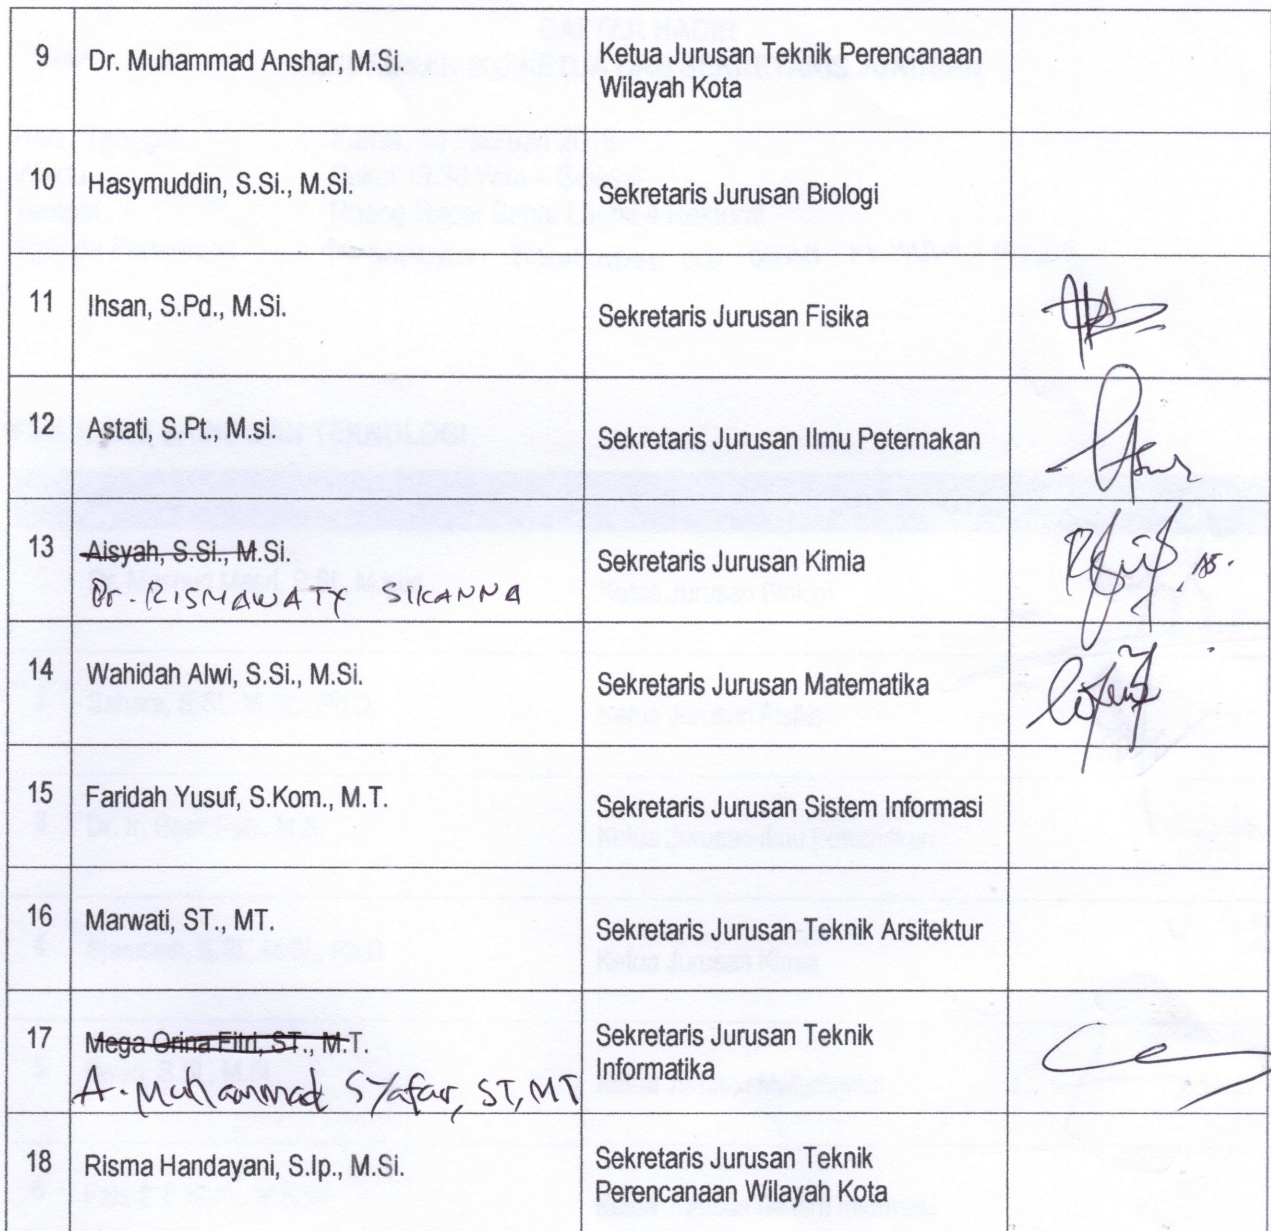 9 Dr. Muhammad Anshar, M.Si. Ketua Jurusan Teknik Perencanaan
Wilayah Kota
10 Hasymuddin, S.Si., M.Si. Sekretaris Jurusan Biologi
11 Ihsan, S.Pd., M.Si. Sekretaris Jurusan Fisika
12 Astati, S.Pt., M.si. Sekretaris Jurusan Ilmu Peternakan
13 Aisyah, S.Si., M.Si. Sekretaris Jurusan Kimia
Dr. RISMAWATY SIKANNA
14 Wahidah Alwi, S.Si., M.Si. Sekretaris Jurusan Matematika
15 Faridah Yusuf, S.Kom., M.T. Sekretaris Jurusan Sistem Informasi
16 Marwati, ST., MT. Sekretaris Jurusan Teknik Arsitektur
17 Mega Orina Fitri, ST., M.T. Sekretaris Jurusan Teknik
Informatika
A. Muhammad Syafar, ST, MT
18 Risma Handayani, S.Ip., M.Si. Sekretaris Jurusan Teknik
Perencanaan Wilayah Kota